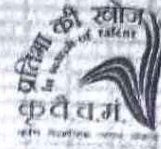 प्रतिभा की खोज
In search of talent
कृ वै च.मं.